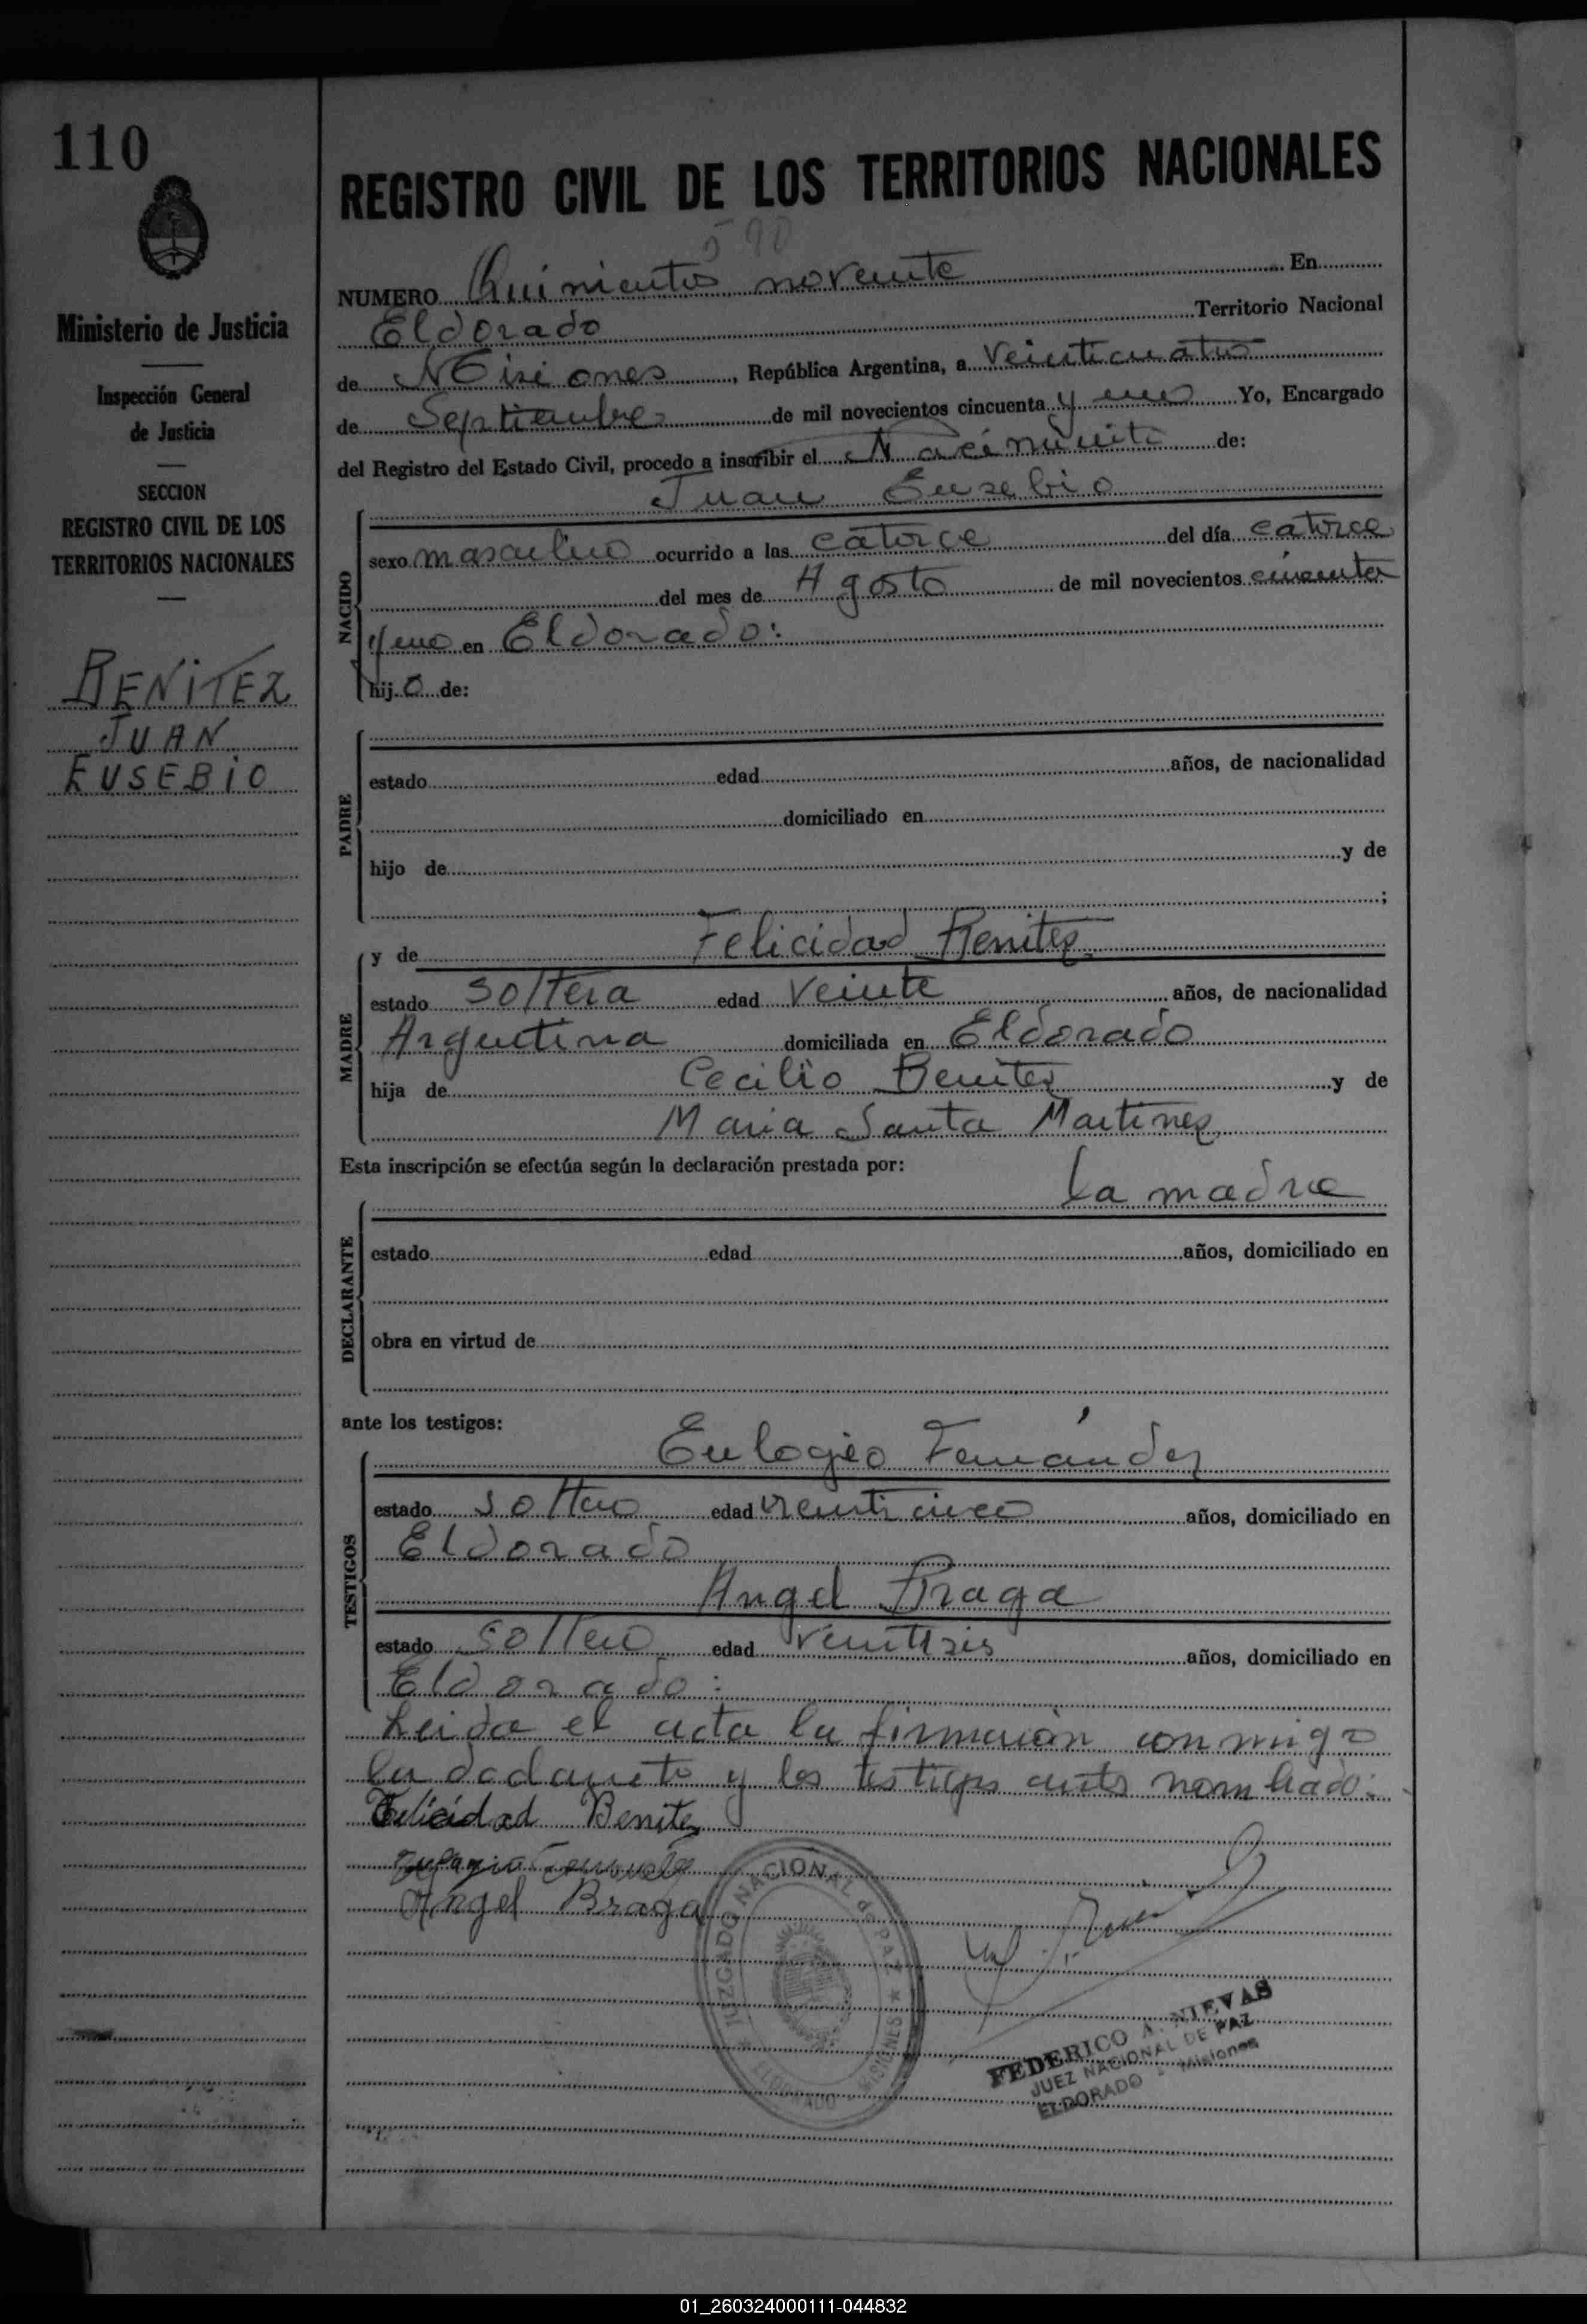 110
Ministerio de Justicia
Inspección General
de Justicia
SECCION
REGISTRO CIVIL DE LOS
TERRITORIOS NACIONALES
BENiTEZ
JUAN
EUSEBiO
REGISTRO CIVIL DE LOS TERRITORIOS NACIONALES
590
NUMERO Quinientos noventa En
Eldorado Territorio Nacional
de Misiones, República Argentina, a Veinticuatro
de Septiembre de mil novecientos cincuenta y uno Yo, Encargado
del Registro del Estado Civil, procedo a inscribir el Nacimiento de:
Juan Eusebio
NACIDO
sexo masculino ocurrido a las catorce del día catorce
del mes de Agosto de mil novecientos cincuenta
y uno en Eldorado:
hijo de:
PADRE
estado edad años, de nacionalidad
domiciliado en
hijo de y de
;
MADRE
y de Felicidad Benitez
estado soltera edad Veinte años, de nacionalidad
Argentina domiciliada en Eldorado
hija de Cecilio Benitez y de
Maria Santa Martinez
Esta inscripción se efectúa según la declaración prestada por:
la madre
DECLARANTE
estado edad años, domiciliado en
obra en virtud de
ante los testigos:
Eulogio Fernández
TESTIGOS
estado soltero edad veinticinco años, domiciliado en
Eldorado
Angel Braga
estado soltero edad veintiseis años, domiciliado en
Eldorado:
Leida el acta la firmarón conmigo
la y los testigos ante nombrado:
Felicidad Benitez
Angel Braga
JUZGADO NACIONAL de PAZ
ELDORADO MISIONES
FEDERICO A. NIEVAS
JUEZ NACIONAL DE PAZ
ELDORADO - Misiones
01_260324000111-044832